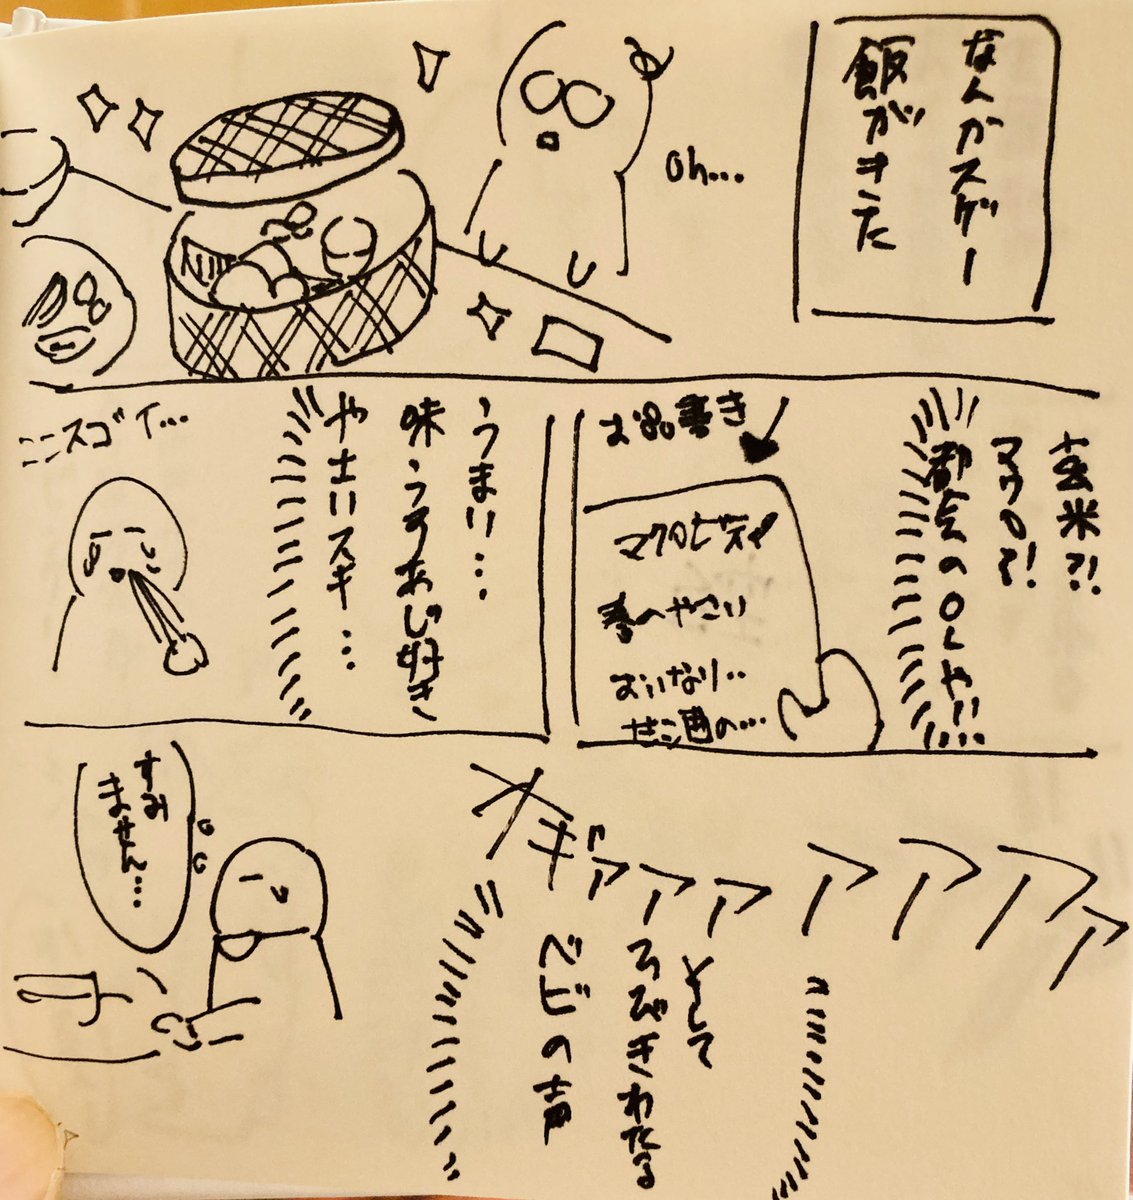 なんかスゲー
飯がきた
oh...
玄米?!
マクロ?!
都会のOLや!!...
お品書き
マクロビディ
春へやさい
おいなり..
うまい...
味うすあじ好き
ヤさいスキ...
ここスゴイ...
オギァァァアアアァ
そして
ろびきわたる
ベビの声
すみ
ません...